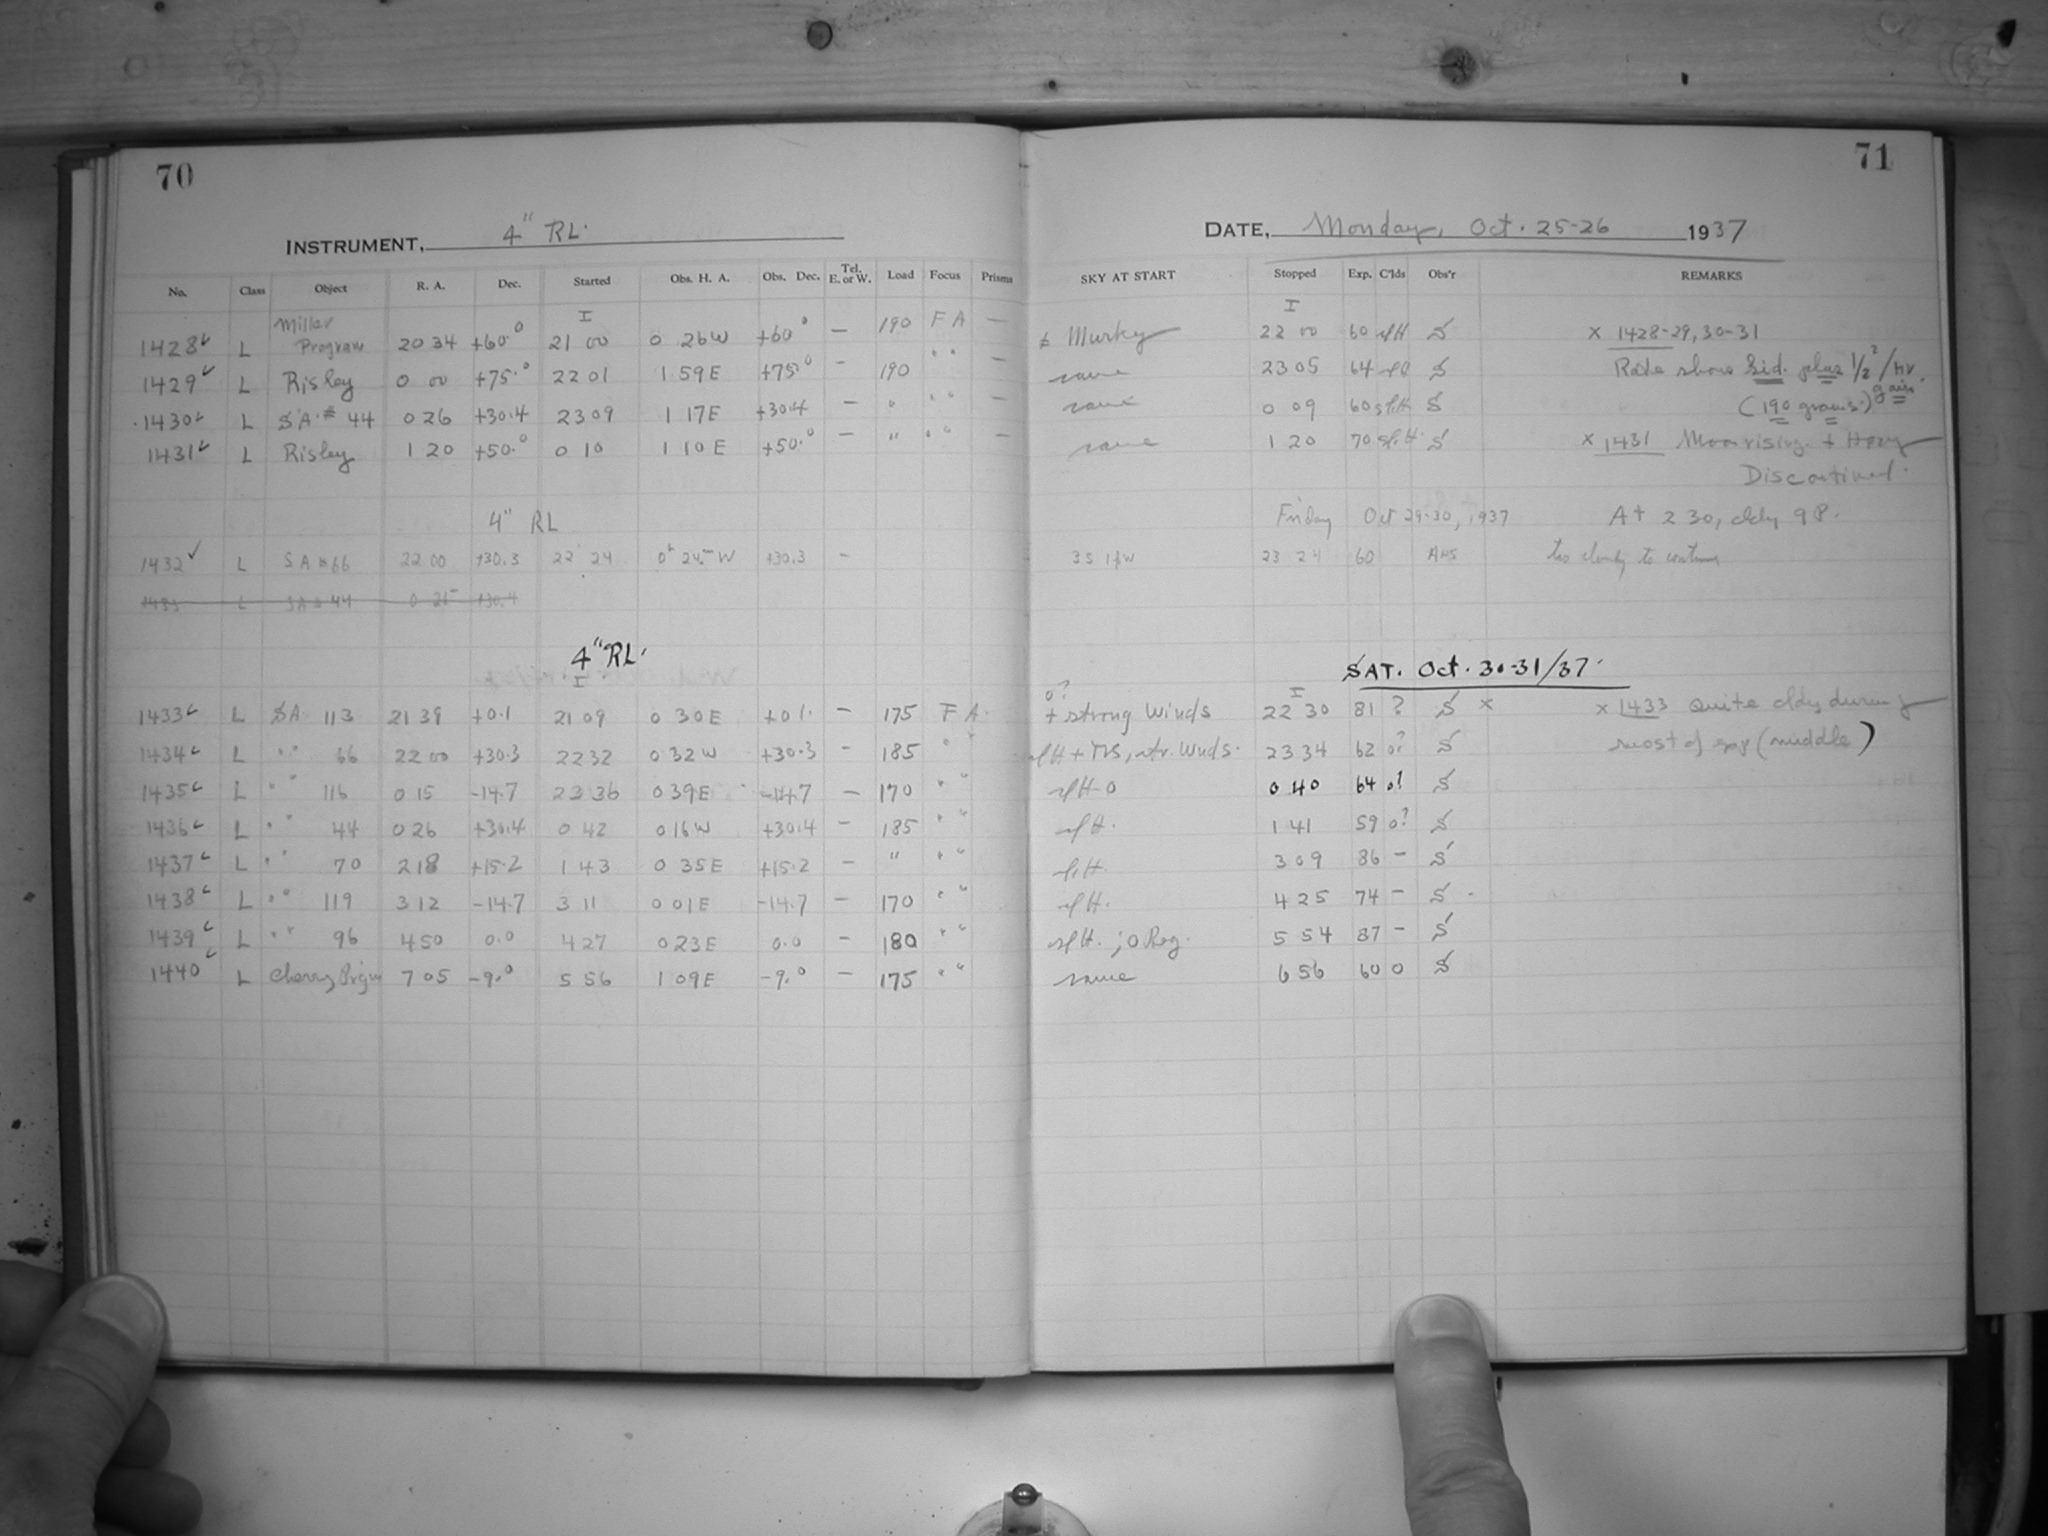 70
INSTRUMENT, 4" RL.
No. Class Object R. A. Dec. Started Obs. H. A. Obs. Dec. Tel. E. or W. Load Focus Prisms
I
1428 L Miller Program 20 34 +60.° 21 00 0 26W +60° — 190 F A —
1429 L Risley 0 00 +75.° 22 01 1 59E +75° — 190 " " —
1430 L SA # 44 0 26 +30.4 23 09 1 17E +30.4 — " " " —
1431 L Risley 1 20 +50.° 0 10 1 10 E +50.° — " " " —
4" RL
1432 ✓ L SA # 66 22 00 +30.3 22 24 0h 24m W +30.3 —
1433 L SA # 44 0 25 +30.4
4" RL.
I
1433 L SA. 113 21 39 +0.1 21 09 0 30E +0.1 — 175 F A.
1434 L " " 66 22 00 +30.3 22 32 0 32W +30.3 — 185 " "
1435 L " " 116 0 15 -14.7 23 36 0 39E -14.7 — 170 " "
1436 L " " 44 0 26 +30.4 0 42 0 16W +30.4 — 185 " "
1437 L " " 70 2 18 +15.2 1 43 0 35E +15.2 — " " "
1438 L " " 119 3 12 -14.7 3 11 0 01E -14.7 — 170 " "
1439 L " " 96 4 50 0.0 4 27 0 23E 0.0 — 180 " "
1440 L Cherry Prgm 7 05 -9.° 5 56 1 09E -9.° — 175 " "
71
DATE, Monday, Oct. 25-26 1937
SKY AT START Stopped Exp. C'lds Obs'r REMARKS
I
Murky 22 00 60 slH S x 1428-29, 30-31
same 23 05 64 S Rate above Sid. plus 1/2 /hr
same 0 09 60 sl.H S (190 grams.) gain.
same 1 20 70 sl.H. S x 1431 Moon rising +
Discontinued.
Friday Oct 29-30, 1937 At 2 30, cldy 9 P.
23 24 60 too cloudy to continue
SAT. Oct. 30-31/37.
o? I
+ strong Winds 22 30 81 ? S x x 1433 Quite cldy during
slH + str. Wnds. 23 34 62 o? S most of exp (middle)
slH o 0 40 64 o? S
slH. 1 41 59 o? S
sl.H. 3 09 86 — S
slH. 4 25 74 — S
slH. ; 5 54 87 — S
same 6 56 60 0 S